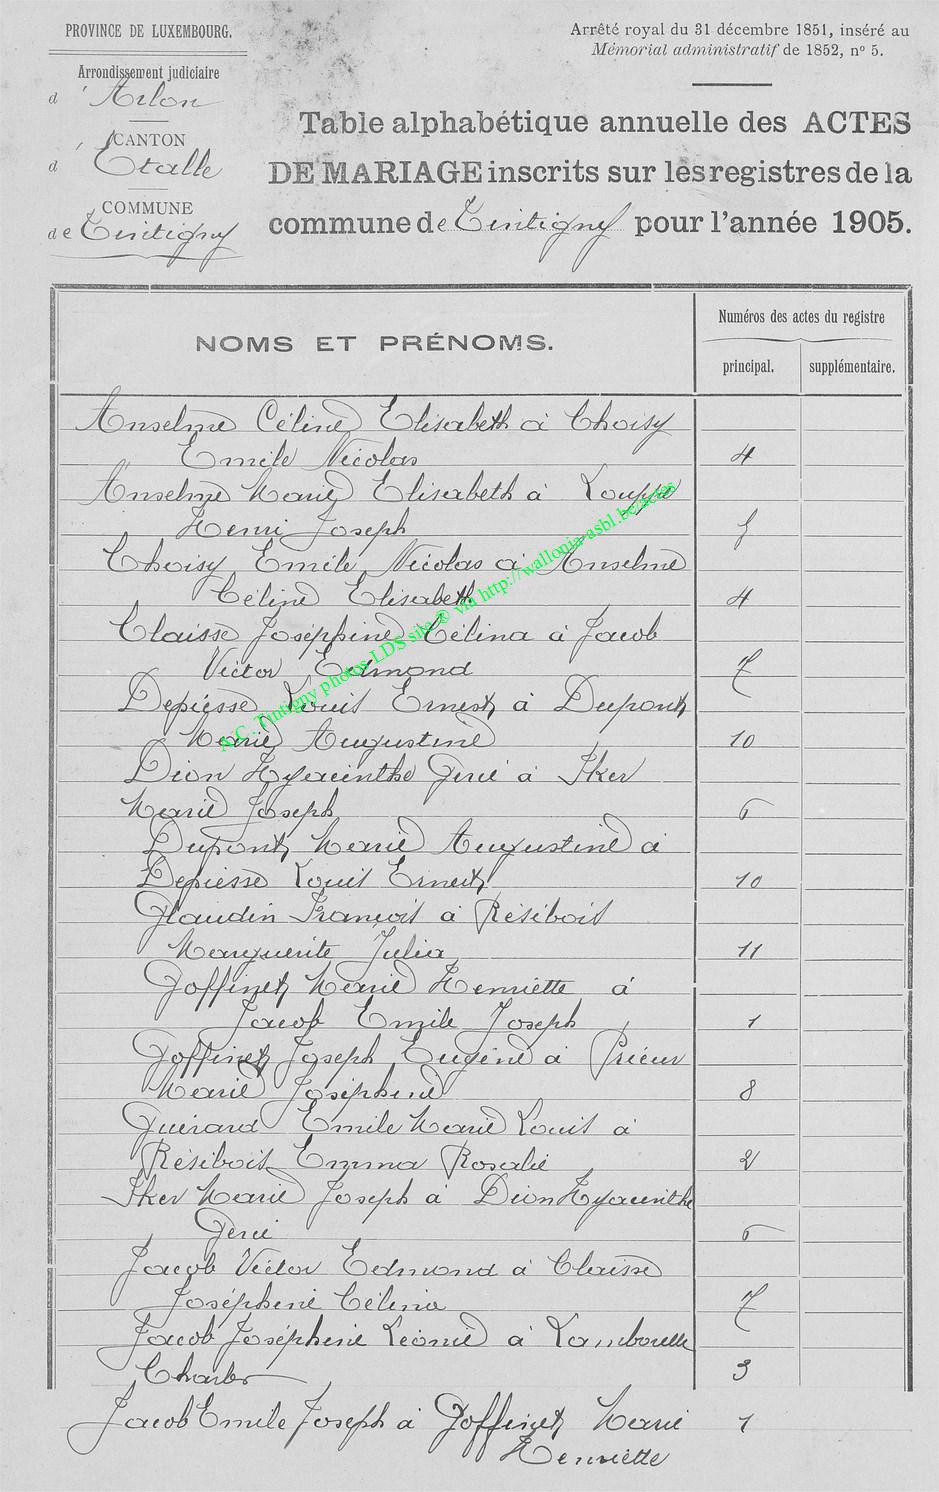 PROVINCE DE LUXEMBOURG.
Arrondissement judiciaire
d'Arlon
CANTON
d'Etalle
COMMUNE
de Tintigny
Arrêté royal du 31 décembre 1851, inséré au
Mémorial administratif de 1852, nº 5.
Table alphabétique annuelle des ACTES
DE MARIAGE inscrits sur les registres de la
commune de Tintigny pour l'année 1905.
NOMS ET PRÉNOMS.
Numéros des actes du registre
principal. supplémentaire.
Anselme Céline Elisabeth à Choisy
Emile Nicolas 4
Anselme Marie Elisabeth à Louppe
Henri Joseph
Choisy Emile Nicolas à Anselme
Céline Elisabeth 4
Claisse Joséphine Célina à Jacob
Victor Edmond 7
Depiesse Louis Ernest à Dupont
Marie Augustine 10
Dion Hyacinthe à Iker
Marie Joseph 6
Dupont Marie Augustine à
Depiesse Louis Ernest 10
Glaudin François à Résibois
Marguerite Julia 11
Goffinet Marie Henriette à
Jacob Emile Joseph 1
Goffinet Joseph Eugène à Prieur
Marie Joséphine 8
Guirard Emile Marie Louis à
Résibois Emma Rosalie 2
Iker Marie Joseph à Dion Hyacinthe
6
Jacob Victor Edmond à Claisse
Joséphine Célina 7
Jacob Joséphine Léonie à Lamborelle
Charles 3
Jacob Emile Joseph à Goffinet Marie 1
Henriette
A.C. Tintigny photos LDS site ® via http://wallonia-asbl.be/actes